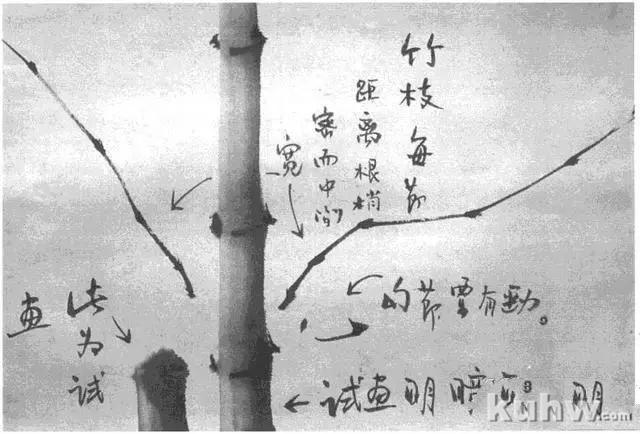 竹枝每节
距离根梢
密而中间
宽
的节要有劲。
此为试
画
试画明暗
明
Kuhw.com